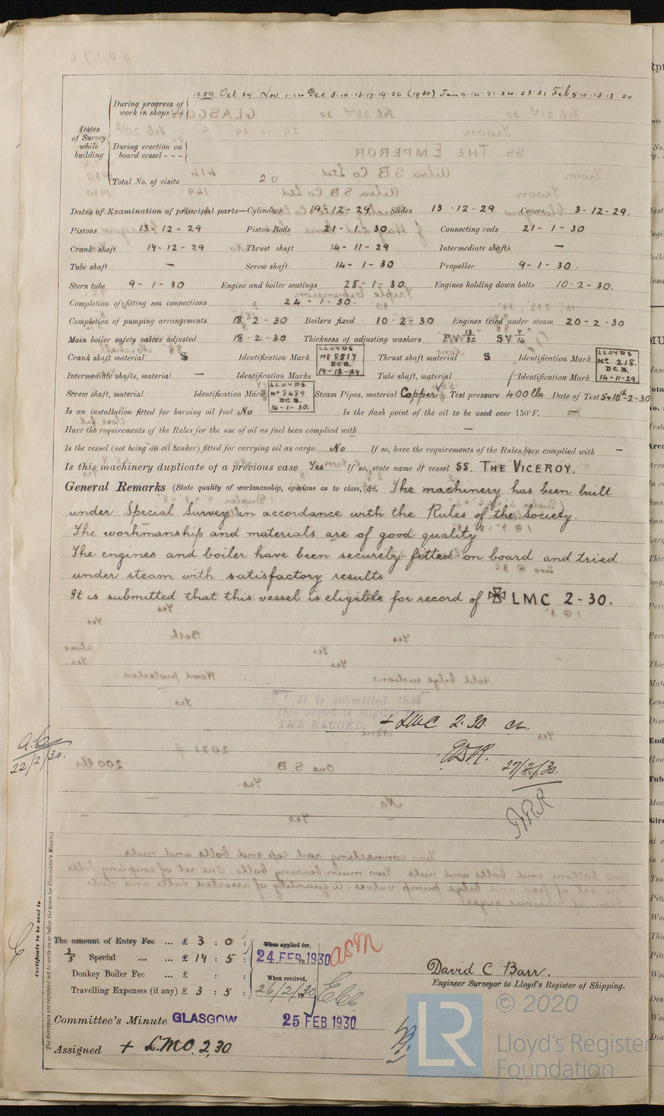 Dates of Survey while building
During progress of work in shops - - 1929 Oct 29 Nov. 1.14 Dec 3.10.13.17.19.26 (1930) Jan 9.14.21.24.28.31 Feb 5.10.13.18.20
During erection on board vessel - - -
Total No. of visits 20
Dates of Examination of principal parts—Cylinders 19-12-29 Slides 13-12-29 Covers 3-12-29.
Pistons 13-12-29 Piston Rods 21-1-30 Connecting rods 21-1-30
Crank shaft 14-12-29 Thrust shaft 14-11-29 Intermediate shafts —
Tube shaft — Screw shaft 14-1-30 Propeller 9-1-30.
Stern tube 9-1-30 Engine and boiler seatings 28-1-30. Engines holding down bolts 10-2-30.
Completion of fitting sea connections 24-1-30.
Completion of pumping arrangements 18-2-30 Boilers fixed 10-2-30 Engines tried under steam 20-2-30
Main boiler safety valves adjusted 18-2-30 Thickness of adjusting washers P.V. 13/32 S.V.
Crank shaft material S Identification Mark LLOYDS No 8517 D.C.B. 14-12-29 Thrust shaft material S Identification Mark LLOYDS No 218. D.C.B. 14-11-29.
Intermediate shafts, material — Identification Marks Tube shaft, material Identification Mark
Screw shaft, material Identification Mark LLOYDS No 8489 D.C.B. 14-1-30. Steam Pipes, material Copper Test pressure 400 lbs Date of Test 5 & 10th-2-30
Is an installation fitted for burning oil fuel No Is the flash point of the oil to be used over 150°F. —
Have the requirements of the Rules for the use of oil as fuel been complied with —
Is the vessel (not being an oil tanker) fitted for carrying oil as cargo No If so, have the requirements of the Rules been complied with —
Is this machinery duplicate of a previous case Yes If so, state name of vessel SS. THE VICEROY.
General Remarks (State quality of workmanship, opinions as to class, &c. The machinery has been built
under Special Survey in accordance with the Rules of the Society.
The workmanship and materials are of good quality
The engines and boiler have been securely fitted on board and tried
under steam with satisfactory results
It is submitted that this vessel is eligible for record of ✠ LMC 2-30.
It is submitted that
this vessel is eligible for
THE RECORD.
+ LMC 2.30. CL.
27/2/30.
ARR
22/2/30.
Certificate to be sent to
The Surveyors are requested not to write on or below the space for Committee's Minute.
The amount of Entry Fee ... £ 3 : 0 :
Special ... ... £ 14 : 5 :
Donkey Boiler Fee ... £ : :
Travelling Expenses (if any) £ 3 : 5 :
When applied for, 24 FEB 1930
When received, 26/2/30
David C Barr.
Engineer Surveyor to Lloyd's Register of Shipping.
Committee's Minute GLASGOW 25 FEB 1930
Assigned + LMC 2,30
© 2020
LR
Lloyd's Register
Foundation